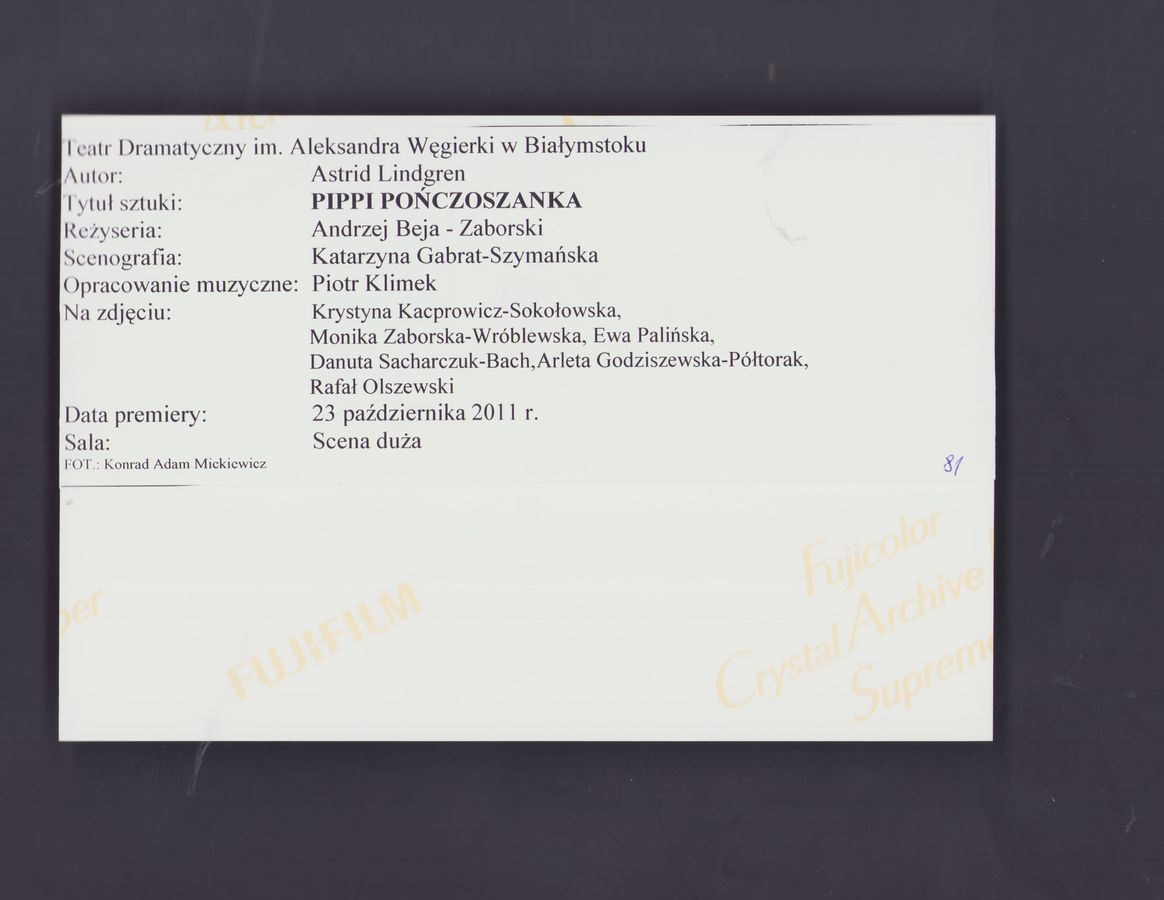 Teatr Dramatyczny im. Aleksandra Węgierki w Białymstoku
Autor: Astrid Lindgren
Tytuł sztuki: PIPPI POŃCZOSZANKA
Reżyseria: Andrzej Beja - Zaborski
Scenografia: Katarzyna Gabrat-Szymańska
Opracowanie muzyczne: Piotr Klimek
Na zdjęciu: Krystyna Kacprowicz-Sokołowska,
Monika Zaborska-Wróblewska, Ewa Palińska,
Danuta Sacharczuk-Bach,Arleta Godziszewska-Półtorak,
Rafał Olszewski
Data premiery: 23 października 2011 r.
Sala: Scena duża
FOT.: Konrad Adam Mickiewicz
81
FUJIFILM
Fujicolor
Crystal Archive
Supreme